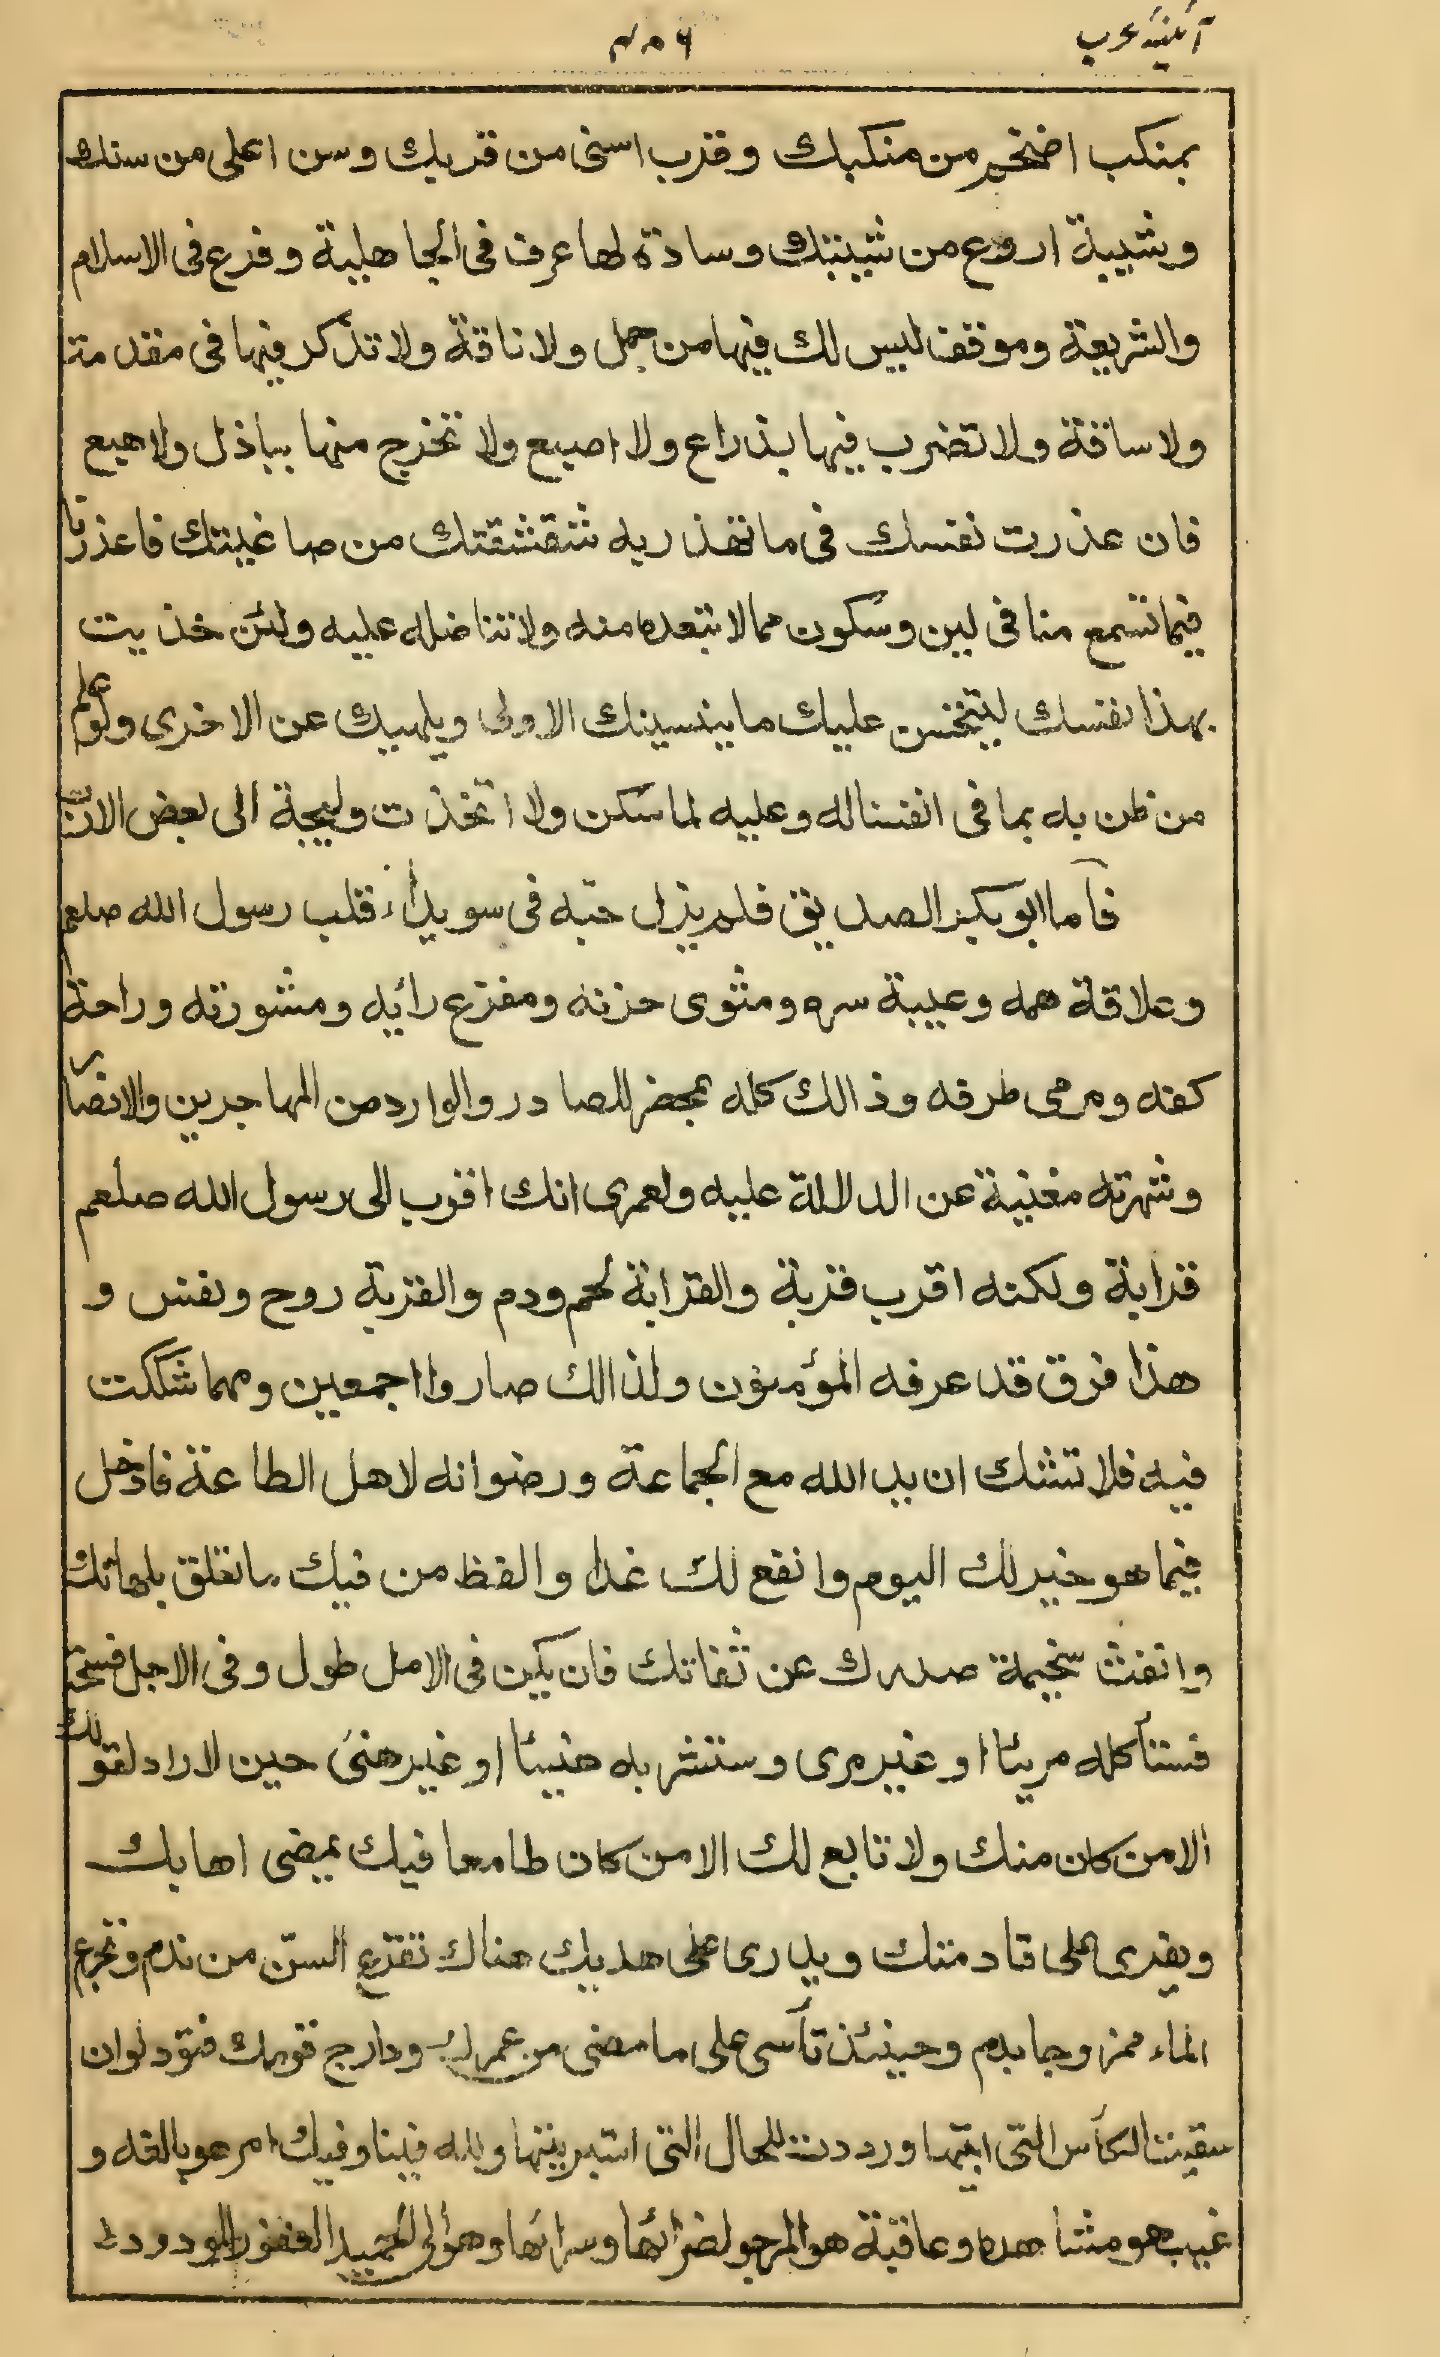 آئینۂ عرب
بمنكب اضخم من منكبك وقرب اسنى من قربك وسن اعلى من سنك
وشيبة اروع من شيبتك وسادة لها عرف فى الجاهلية وفرع فى الاسلام
والشريعة وموقف ليس لك فيها من جمل ولا ناقة ولا تذكر فيها فى مقدمة
ولا ساقة ولا تضرب فيها بذراع ولا اصبع ولا تخرج منها ببازل ولا هبع
فان عذرت نفسك فى ما تهذر به شقشقتك من صاغيتك فاعذرنا
فيما تسمع منا فى لين وسكون مما لا تبعده منه ولا تناضله عليه ولئن خذيت
بهذا نفسك ليتخنس عليك ما ينسينك الاولى ويلهيك عن الاخرى ولو علم
من ظن به بما فى انفسنا له وعليه لما سكن ولا اتخذت وليجة الى بعض الارب
فاما ابو بكر الصديق فلم يزل حبه فى سويداء قلب رسول الله صلعم
وعلاقة همه وعيبة سره ومثوى حزنه ومفزع رائيه ومشورته وراحة
كفه ومرمى طرفه وذالك كله بمحضر الصادر والوارد من المهاجرين والانصار
وشهرته مغنية عن الدلالة عليه ولعمرى انك اقرب الى رسول الله صلعم
قرابة ولكنه اقرب قربة والقرابة لحم ودم والقربة روح ونفس و
هذا فرق قد عرفه المؤمنون ولذالك صاروا اجمعين ومهما شككت
فيه فلا تشك ان يد الله مع الجماعة ورضوانه لاهل الطاعة فادخل
فيما هو خير لك اليوم وانفع لك غدا والفظ من فيك ما تعلق بلهاتك
وانفث سخيمة صدرك عن ثفاتك فان يكن فى الامل طول وفى الاجل فسحة
فستأكله مريئا او غير مرى وستشربه هنيئا او غير هنئ حين لا راد لقولك
الا من كان منك ولا تابع لك الا من كان طامعا فيك يمضى اهابك
ويفرى على قادمتك ويدارى على هديك هناك تقزع السن من ندم وتجرع
الماء ممزوجا بدم وحينئذ تأسى على ما مضى من عمرك ودارج قومك فتود لو ان
سقيت الكأس التى ابيتها ورددت للحال التى استبريتها ولله فينا وفيك امر هو بالغه و
غيب هو شاهده وعاقبة هو المرجو لضرائها وسرائها وهو الولى الحميد الغفور الودود